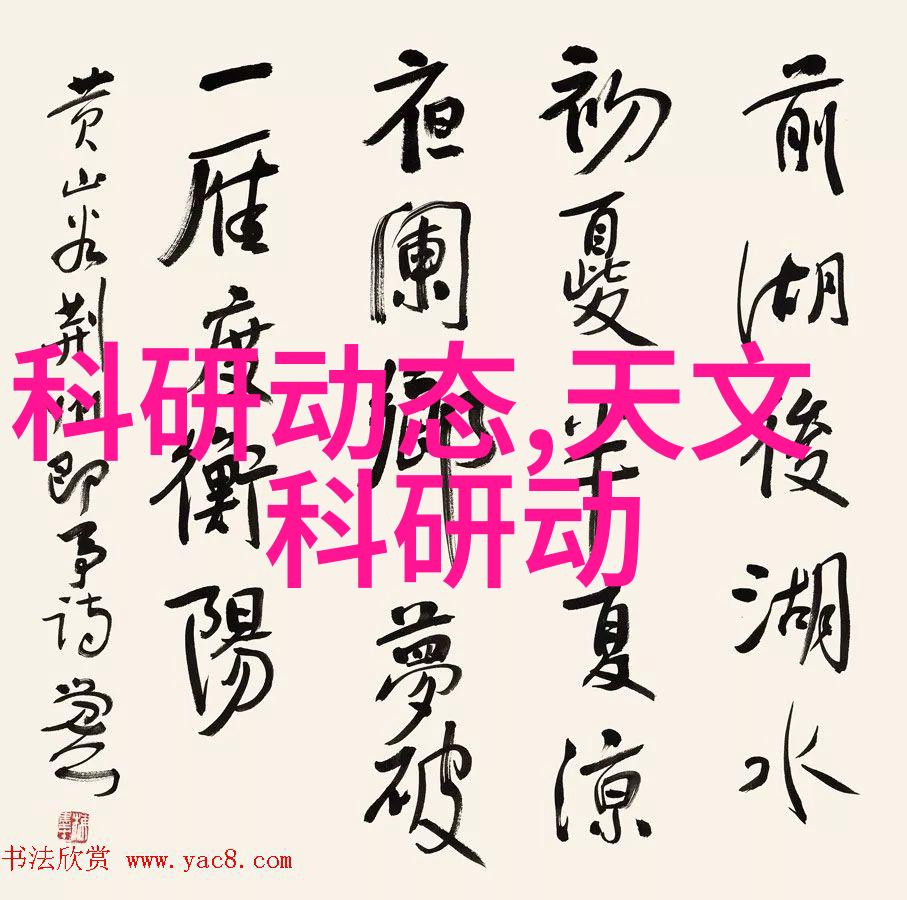 前湖後湖水
初夏半夏涼
夜闌鄉夢破
一雁度衡陽
黄山谷荆州即事诗
科研动态,天文
科研动
书法欣赏 www.yac8.com